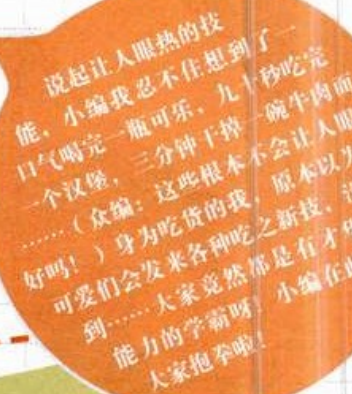 说起让人眼热的技
能，小编我忍不住想到了一
口气喝完一瓶可乐，九十秒吃完
一个汉堡，三分钟干掉一碗牛肉面
……（众编：这些根本不会让人眼
好吗！）身为吃货的我，原本以为
可爱们会发来各种吃之新技，没
到……大家竟然都是有才
能力的学霸呀！小编在此
大家抱拳啦！